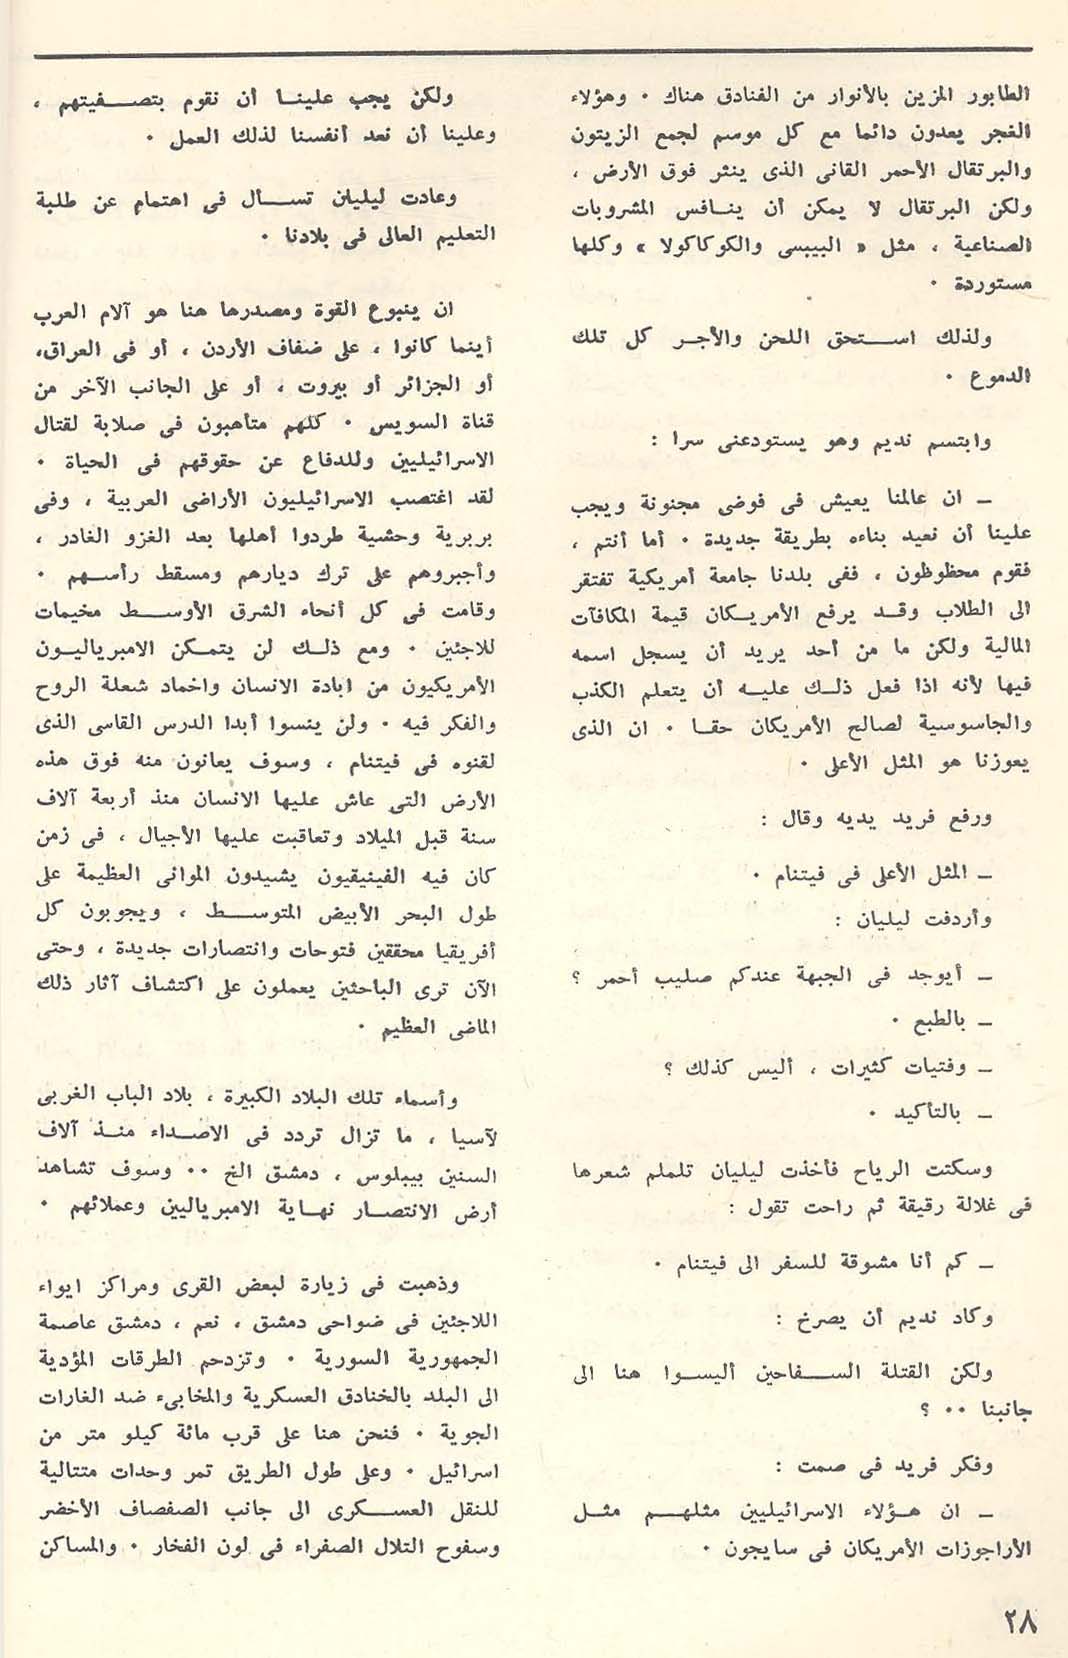 الطابور المزين بالأنوار من الفنادق هناك ٠ وهؤلاء
الغجر يعدون دائما مع كل موسم لجمع الزيتون
والبرتقال الأحمر القانى الذى ينثر فوق الأرض ،
ولكن البرتقال لا يمكن أن ينافس المشروبات
الصناعية ، مثل « البيبسى والكوكاكولا » وكلها
مستوردة ٠
ولذلك استحق اللحن والأجر كل تلك
الدموع ٠
وابتسم نديم وهو يستودعنى سرا :
ــ ان عالمنا يعيش فى فوضى مجنونة ويجب
علينا أن نعيد بناءه بطريقة جديدة ٠ أما أنتم ،
فقوم محظوظون ، ففى بلدنا جامعة أمريكية تفتقر
الى الطلاب وقد يرفع الأمريكان قيمة المكافآت
المالية ولكن ما من أحد يريد أن يسجل اسمه
فيها لأنه اذا فعل ذلك عليه أن يتعلم الكذب
والجاسوسية لصالح الأمريكان حقا ٠ ان الذى
يعوزنا هو المثل الأعلى ٠
ورفع فريد يديه وقال :
ــ المثل الأعلى فى فيتنام ٠
وأردفت ليليان :
ــ أيوجد فى الجبهة عندكم صليب أحمر ؟
ــ بالطبع ٠
ــ وفتيات كثيرات ، أليس كذلك ؟
ــ بالتأكيد ٠
وسكتت الرياح فأخذت ليليان تلملم شعرها
فى غلالة رقيقة ثم راحت تقول :
ــ كم أنا مشوقة للسفر الى فيتنام ٠
وكاد نديم أن يصرخ :
ولكن القتلة السفاحين أليسوا هنا الى
جانبنا ٠٠ ؟
وفكر فريد فى صمت :
ــ ان هؤلاء الاسرائيليين مثلهم مثل
الأراجوزات الأمريكان فى سايجون ٠
ولكن يجب علينا أن نقوم بتصفيتهم ،
وعلينا أن نعد أنفسنا لذلك العمل ٠
وعادت ليليان تسأل فى اهتمام عن طلبة
التعليم العالى فى بلادنا ٠
ان ينبوع القوة ومصدرها هنا هو آلام العرب
أينما كانوا ، على ضفاف الأردن ، أو فى العراق،
أو الجزائر أو بيروت ، أو على الجانب الآخر من
قناة السويس ٠ كلهم متأهبون فى صلابة لقتال
الاسرائيليين وللدفاع عن حقوقهم فى الحياة ٠
لقد اغتصب الاسرائيليون الأراضى العربية ، وفى
بربرية وحشية طردوا أهلها بعد الغزو الغادر ،
وأجبروهم على ترك ديارهم ومسقط رأسهم ٠
وقامت فى كل أنحاء الشرق الأوسط مخيمات
للاجئين ٠ ومع ذلك لن يتمكن الامبرياليون
الأمريكيون من ابادة الانسان واخماد شعلة الروح
والفكر فيه ٠ ولن ينسوا أبدا الدرس القاسى الذى
لقنوه فى فيتنام ، وسوف يعانون منه فوق هذه
الأرض التى عاش عليها الانسان منذ أربعة آلاف
سنة قبل الميلاد وتعاقبت عليها الأجيال ، فى زمن
كان فيه الفينيقيون يشيدون الموانى العظيمة على
طول البحر الأبيض المتوسط ، ويجوبون كل
أفريقيا محققين فتوحات وانتصارات جديدة ، وحتى
الآن ترى الباحثين يعملون على اكتشاف آثار ذلك
الماضى العظيم ٠
وأسماء تلك البلاد الكبيرة ، بلاد الباب الغربى
لآسيا ، ما تزال تردد فى الاصداء منذ آلاف
السنين بيبلوس ، دمشق الخ ٠٠ وسوف تشاهد
أرض الانتصار نهاية الامبرياليين وعملائهم ٠
وذهبت فى زيارة لبعض القرى ومراكز ايواء
اللاجئين فى ضواحى دمشق ، نعم ، دمشق عاصمة
الجمهورية السورية ٠ وتزدحم الطرقات المؤدية
الى البلد بالخنادق العسكرية والمخابىء ضد الغارات
الجوية ٠ فنحن هنا على قرب مائة كيلو متر من
اسرائيل ٠ وعلى طول الطريق تمر وحدات متتالية
للنقل العسكرى الى جانب الصفصاف الأخضر
وسفوح التلال الصفراء فى لون الفخار ٠ والمساكن
٢٨